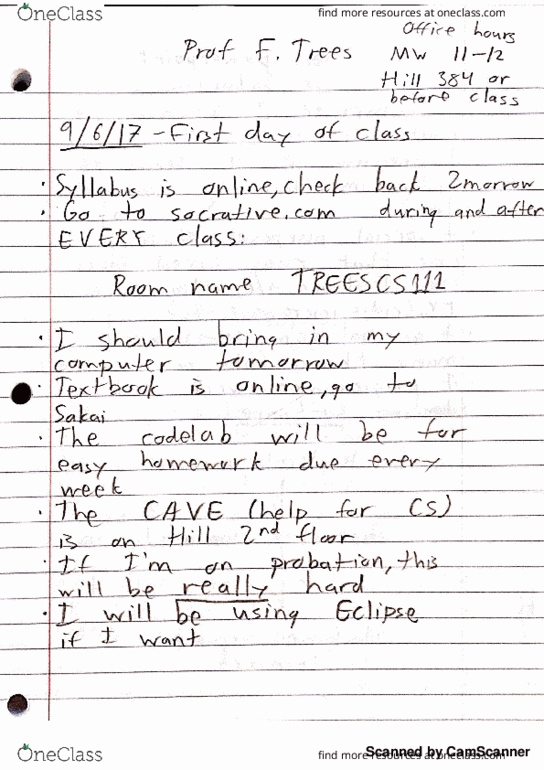 OneClass
find more resources at oneclass.com
Office hours
Prof F. Trees
MW 11-12
Hill 384 or
before class
9/6/17 - First day of class
· Syllabus is online, check back 2morrow
· Go to socrative.com during and after
EVERY class:
Room name TREESCS111
· I should bring in my
computer tomorrow
· Textbook is online, go to
Sakai
· The codelab will be for
easy homework due every
week
· The CAVE (help for CS)
is on Hill 2nd floor
· If I'm on probation, this
will be really hard
· I will be using Eclipse
if I want
OneClass
find more resources at oneclass.com
Scanned by CamScanner